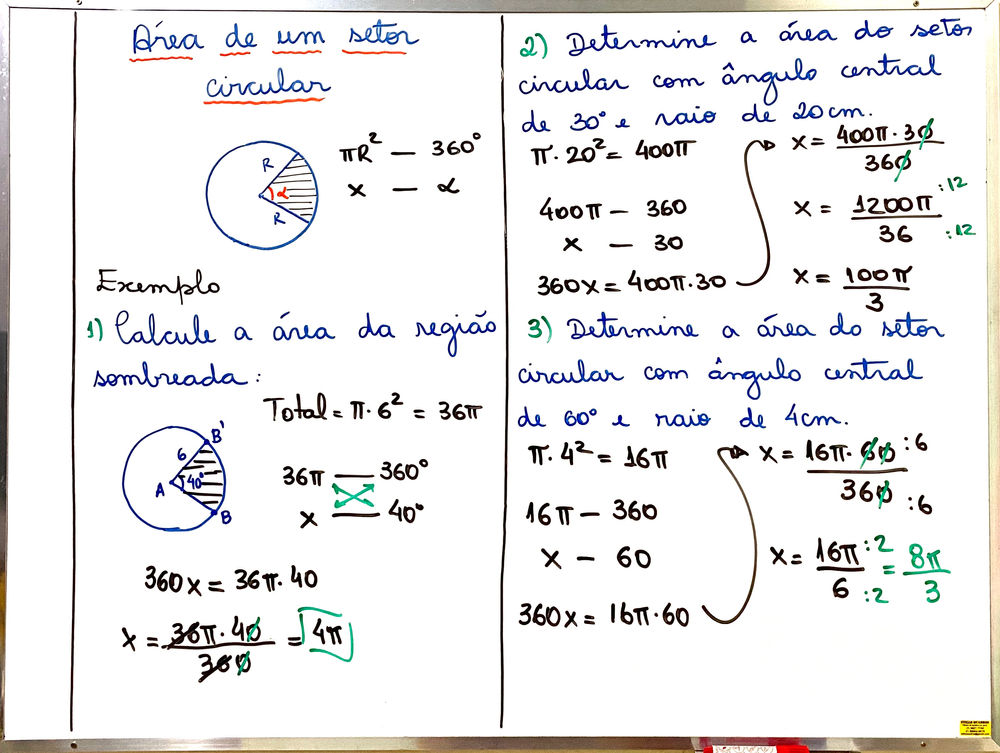 Área de um setor
circular
R
α
R
πR² — 360°
x — α
Exemplo
1) Calcule a área da região
sombreada:
Total = π·6² = 36π
B'
6
40°
A
B
36π — 360°
x — 40°
360x = 36π·40
x = 36π·40 / 360 = 4π
2) Determine a área do setor
circular com ângulo central
de 30° e raio de 20cm.
π·20² = 400π
400π — 360
x — 30
360x = 400π·30
x = 400π·30 / 360
x = 1200π :12 / 36 :12
x = 100π / 3
3) Determine a área do setor
circular com ângulo central
de 60° e raio de 4cm.
π·4² = 16π
16π — 360
x — 60
360x = 16π·60
x = 16π·60 :6 / 360 :6
x = 16π :2 / 6 :2 = 8π / 3